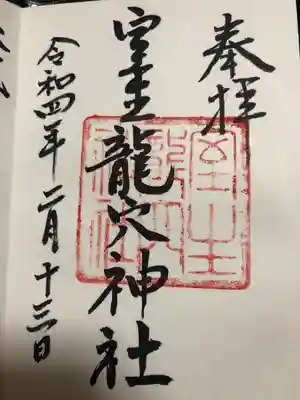 奉拝
室生龍穴神社
室生
龍穴
神社
令和四年二月十三日